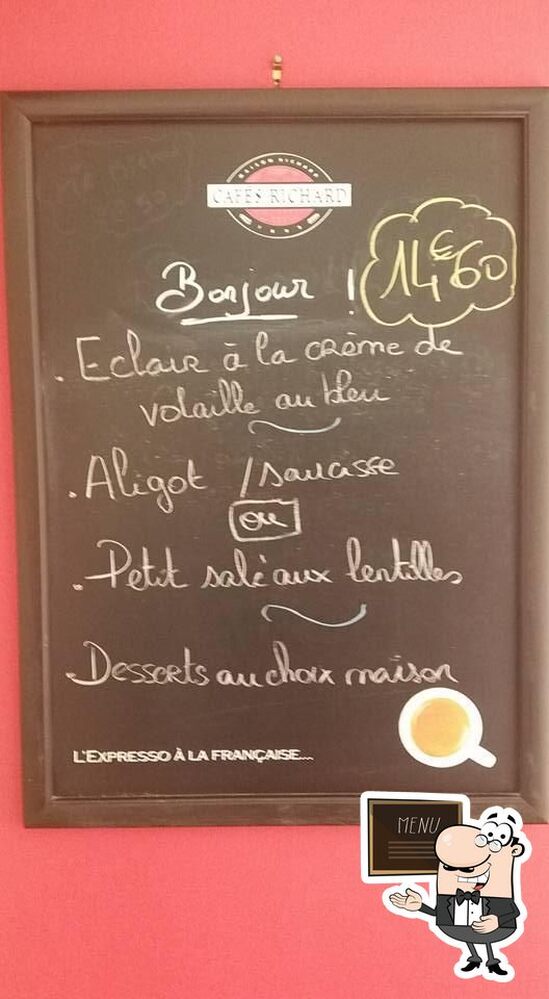 MAISON RICHARD
CAFÉS RICHARD
Bonjour !
14€60
. Eclair à la crème de
volaille au bleu
. Aligot / saucisse
ou
. Petit salé aux lentilles
. Desserts au choix maison
L'EXPRESSO À LA FRANÇAISE...
MENU